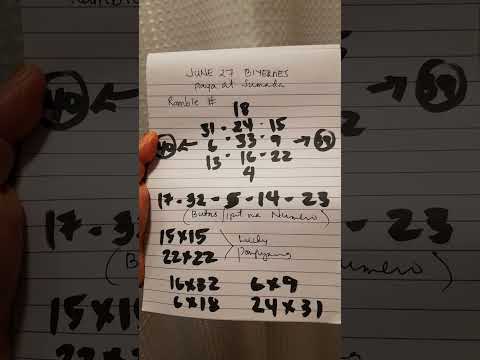 JUNE 27 BIYERNES
paya at Sumada
Ramble #
18
31 - 24 - 15
40 ← 6 - 33 - 9 → 39
13 - 16 - 22
4
17 - 32 - 5 - 14 - 23
(Butas / ipit na Numero)
15x15
22x22
Lucky
Pompyang
16x32 6x9
6x18 24x31